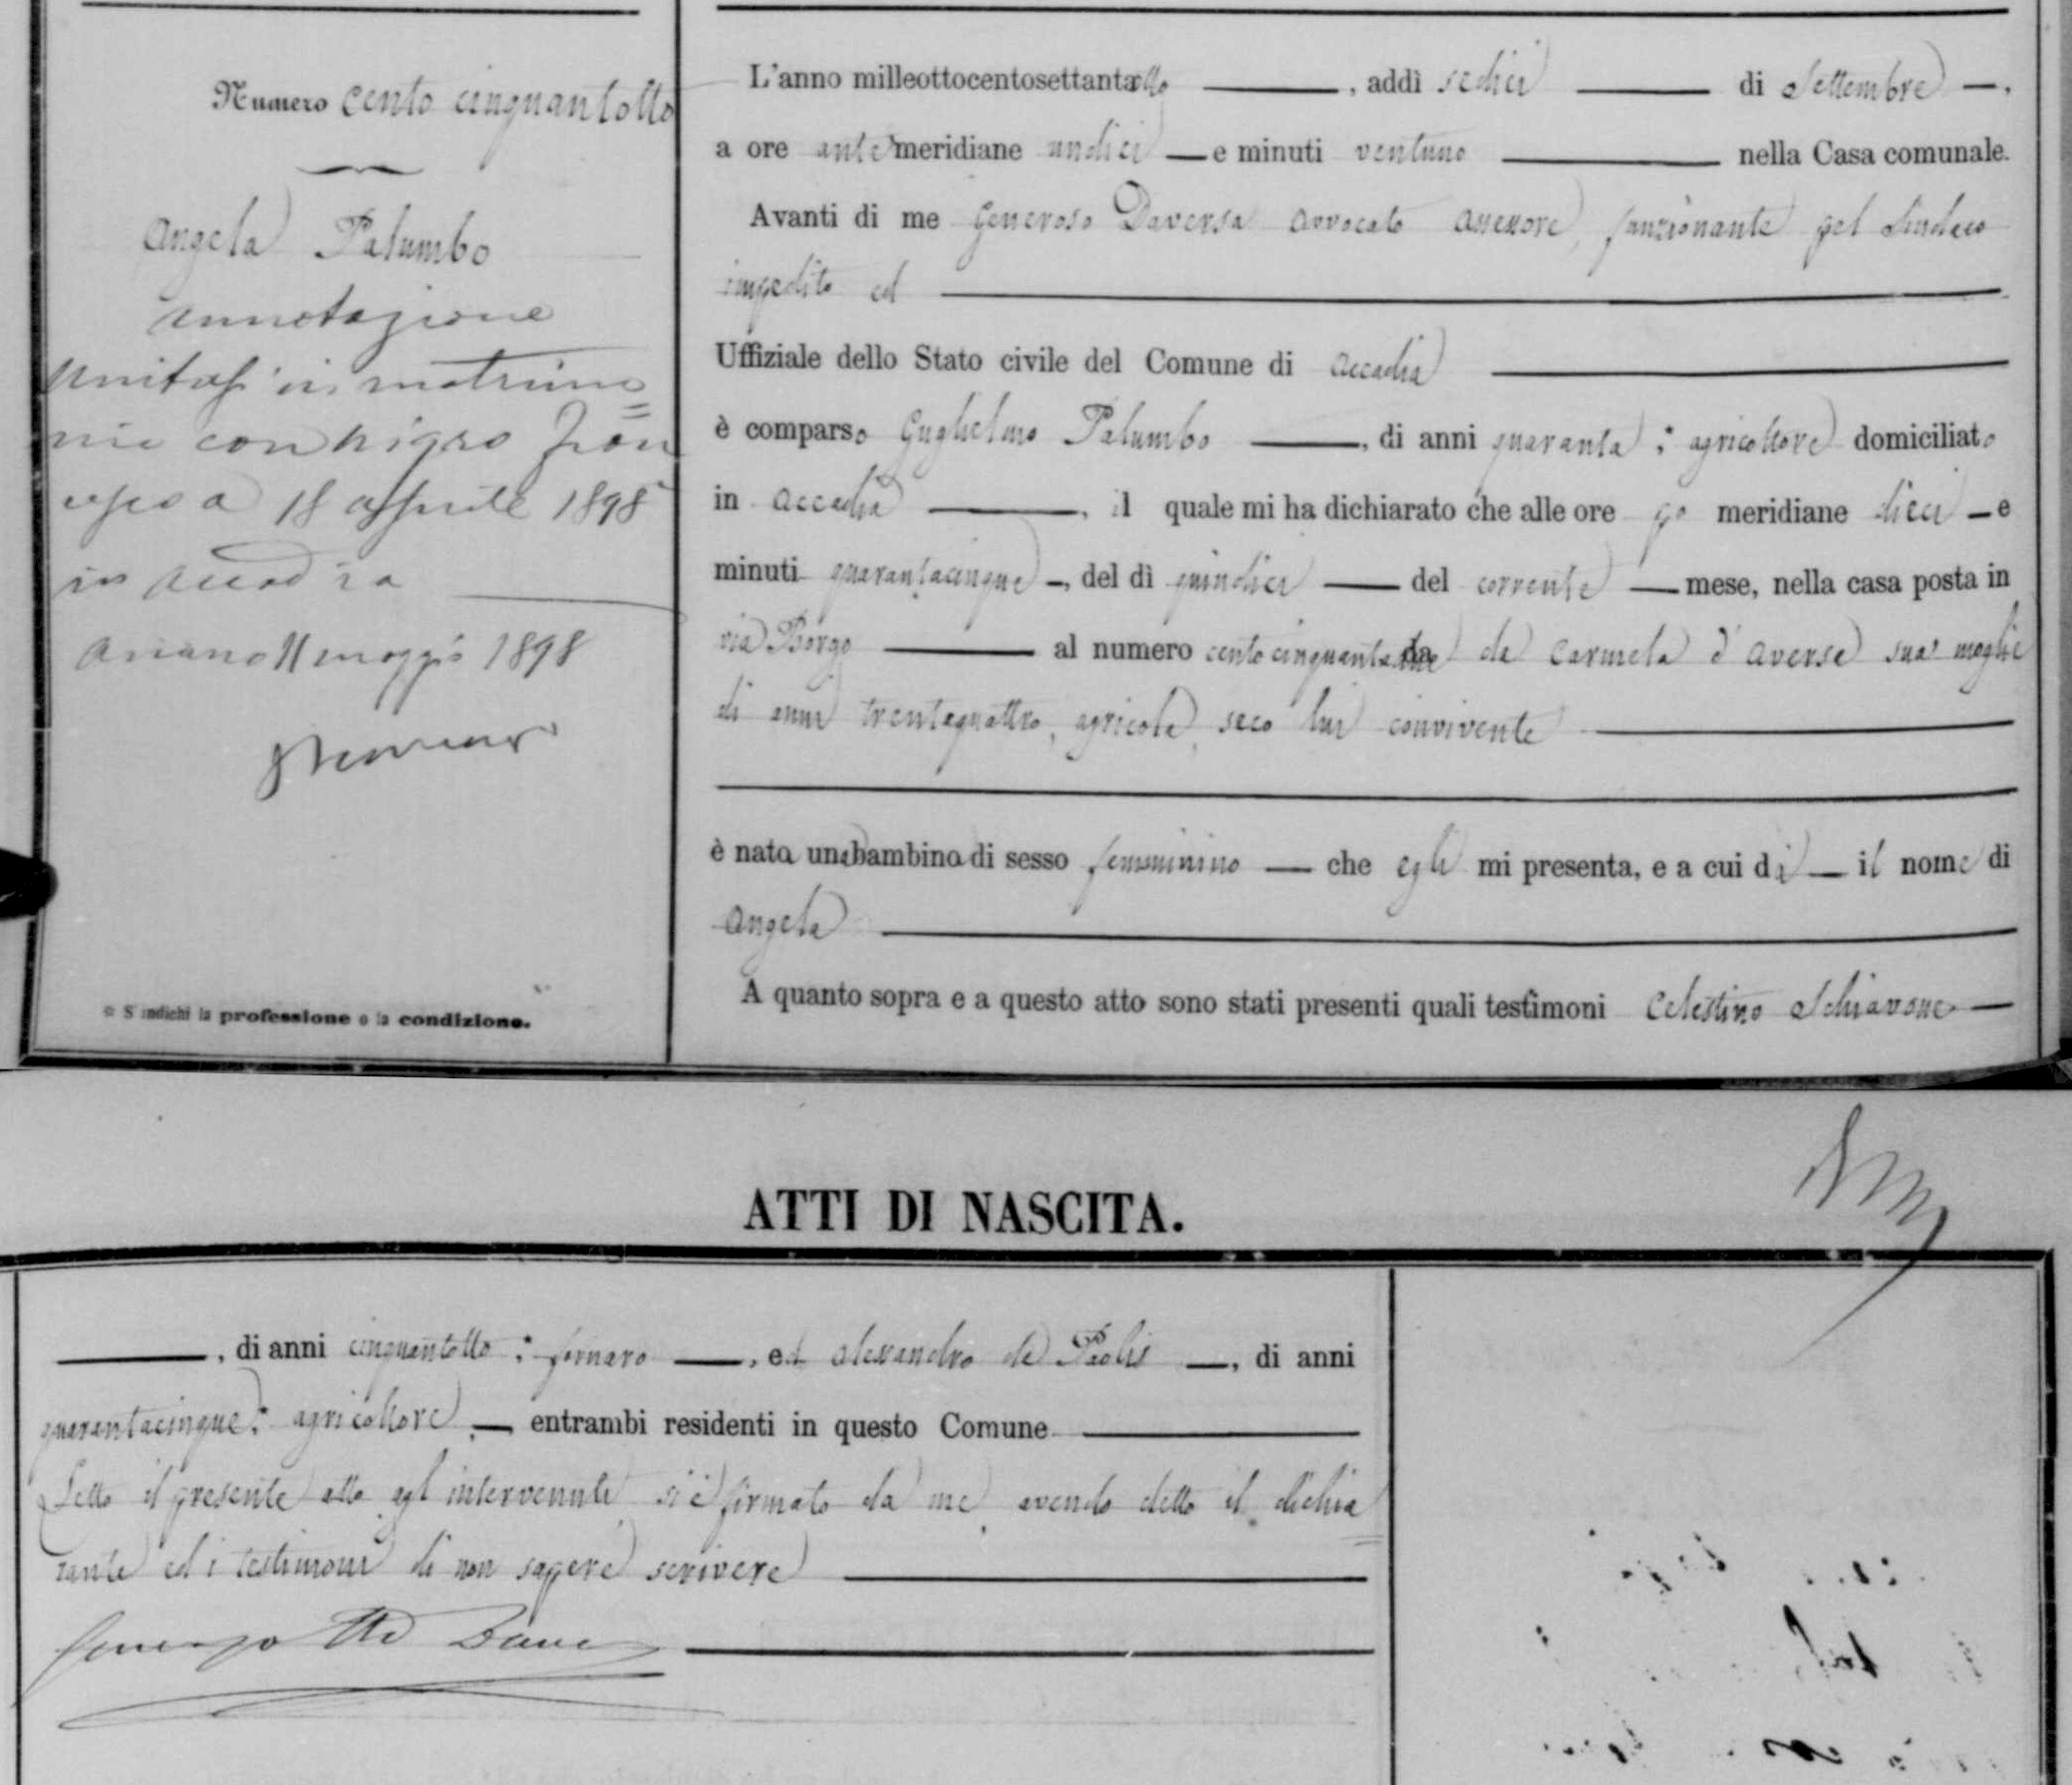 Numero cento cinquantotto
Angela Palumbo
Annotazione
Unitasi in matrimo=
nio con Nigro Fran
cesco a 18 Aprile 1898
in Accadia
Ariano 11 maggio 1898
* S'indichi la professione o la condizione.
L'anno milleottocentosettantotto, addì sedici di Settembre,
a ore antemeridiane undici e minuti ventuno nella Casa comunale.
Avanti di me Generoso Daversa Avvocato Assessore, funzionante pel Sindaco
impedito ed
Uffiziale dello Stato civile del Comune di Accadia
è comparso Guglielmo Palumbo, di anni quaranta: agricoltore domiciliato
in Accadia, il quale mi ha dichiarato che alle ore po meridiane dieci e
minuti quarantacinque, del dì quindici del corrente mese, nella casa posta in
via Borgo al numero cento cinquanta da Carmela d'Aversa sua moglie
di anni trentaquattro, agricola, seco lui convivente
è nata una bambina di sesso femminino che egli mi presenta, e a cui dà il nome di
Angela
A quanto sopra e a questo atto sono stati presenti quali testimoni Celestino Schiavone
ATTI DI NASCITA.
, di anni cinquantotto: fornaro, ed Alessandro de Paolis, di anni
quarantacinque: agricoltore, entrambi residenti in questo Comune
Letto il presente atto agl'intervenuti si è firmato da me, avendo detto il dichia
rante ed i testimoni di non sapere scrivere